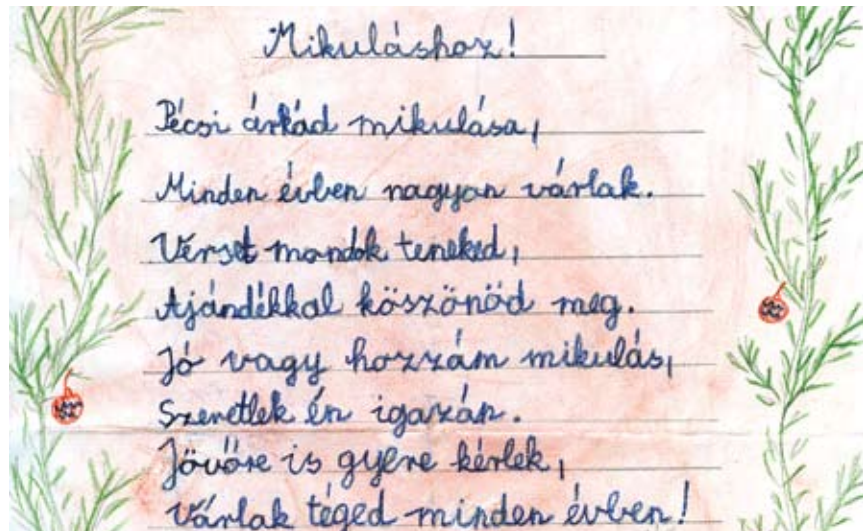 Mikuláshoz!
Pécsi árkád mikulása,
Minden évben nagyon várlak.
Verset mondok teneked,
Ajándékkal köszönöd meg.
Jó vagy hozzám mikulás,
Szeretlek én igazán.
Jövőre is gyere kérlek,
Várlak téged minden évben!